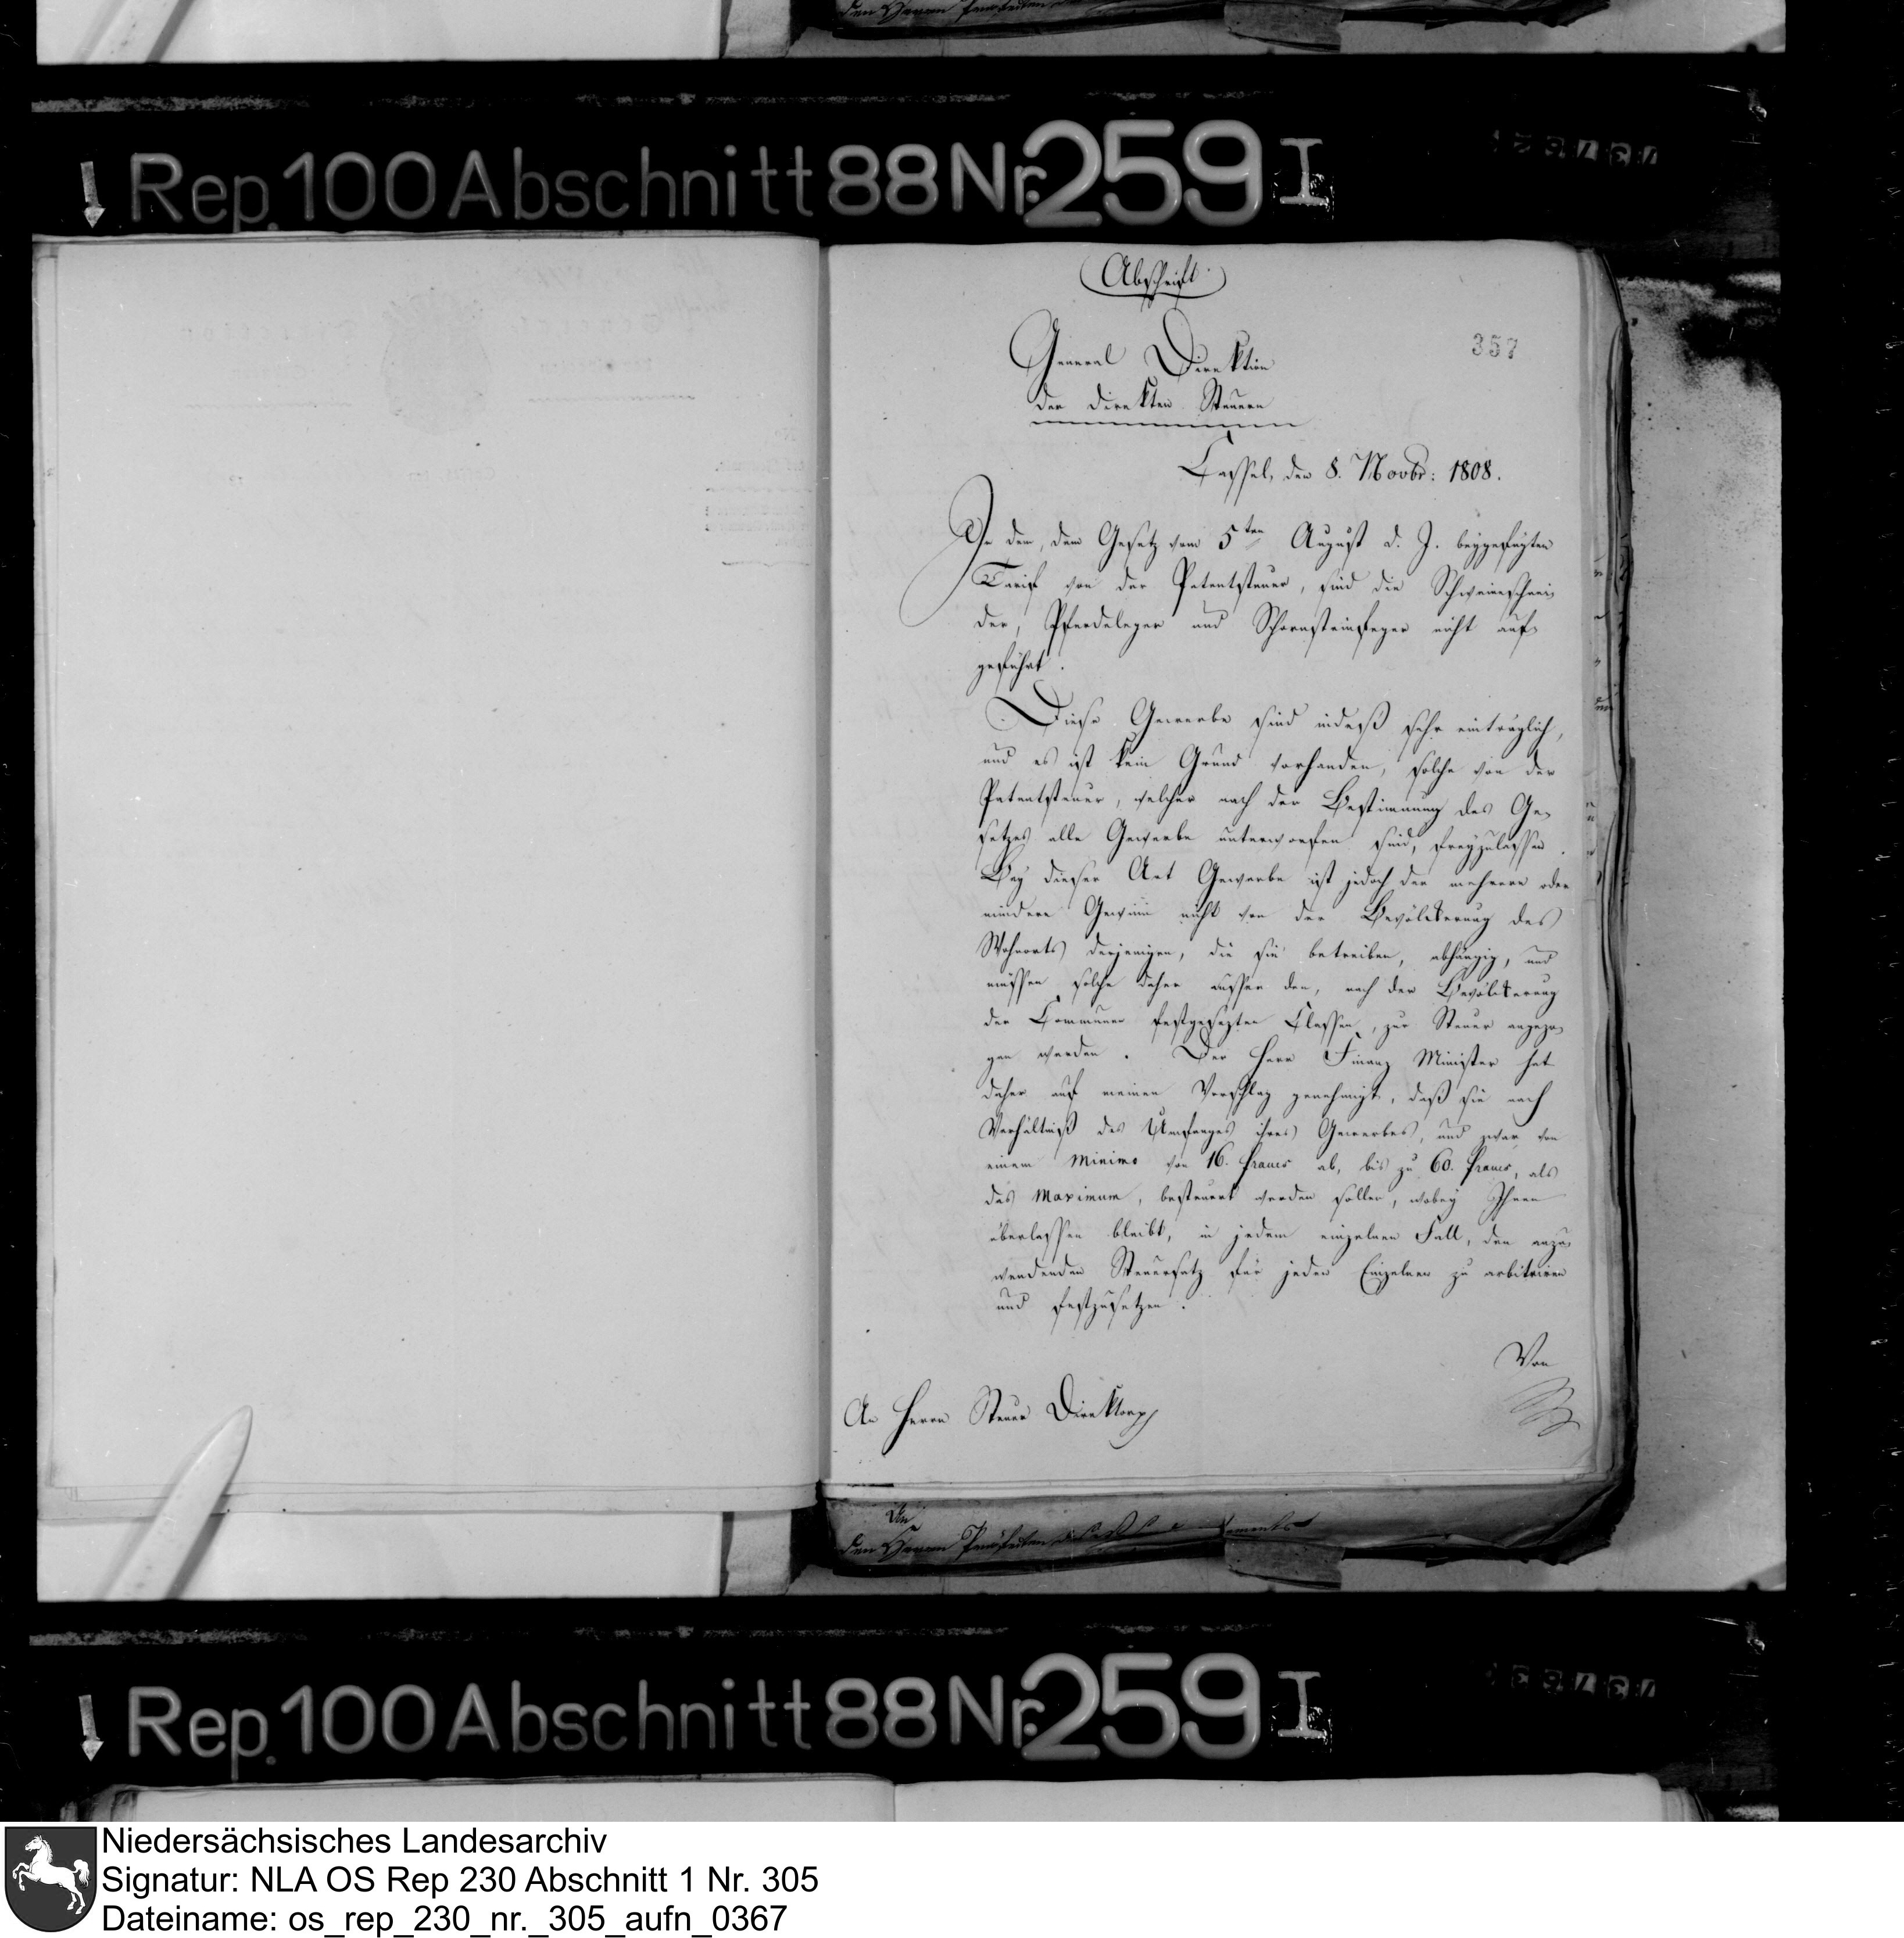 den Herren Praefecten
Rep. 100 Abschnitt 88 Nr. 259 I
Abschrift.
357
General Direktion
der direkten Steuern
Cassel, den 8. Novbr: 1808.
In dem, dem Gesetz vom 5ten August d. J. beygefügten
Tarif von der Patentsteuer, sind die Schweineschnei-
der, Pferdeleger und Schornsteinfeger nicht auf-
geführt.
Diese Gewerbe sind indeß sehr einträglich,
und es ist kein Grund vorhanden, solche von der
Patentsteuer, welcher nach der Bestimmung des Ge-
setzes alle Gewerbe unterworfen sind, freyzulassen.
Bey dieser Art Gewerbe ist jedoch der mehrere oder
mindere Gewinn nicht von der Bevölkerung des
Wohnorts derjenigen, die sie betreiben, abhängig, und
müssen solche daher ausser den, nach der Bevölkerung
der Communen festgesezten Classen, zur Steuer angezo-
gen werden. Der Herr Finanz Minister hat
daher auf meinen Vorschlag genehmigt, daß sie nach
Verhältniß des Umfanges ihres Gewerbes, und zwar von
einem Minimo von 16. francs ab, bis zu 60. francs, als
das Maximum, besteuert werden sollen, wobey Ihnen
überlassen bleibt, in jedem einzelnen Fall, den anzu-
wendenden Steuersatz für jeden Einzelnen zu arbitriren
und festzusetzen.
Von
An Herrn Steuer Direktor
An
den Herren Praefecten
Rep. 100 Abschnitt 88 Nr. 259 I
Niedersächsisches Landesarchiv
Signatur: NLA OS Rep 230 Abschnitt 1 Nr. 305
Dateiname: os_rep_230_nr._305_aufn_0367